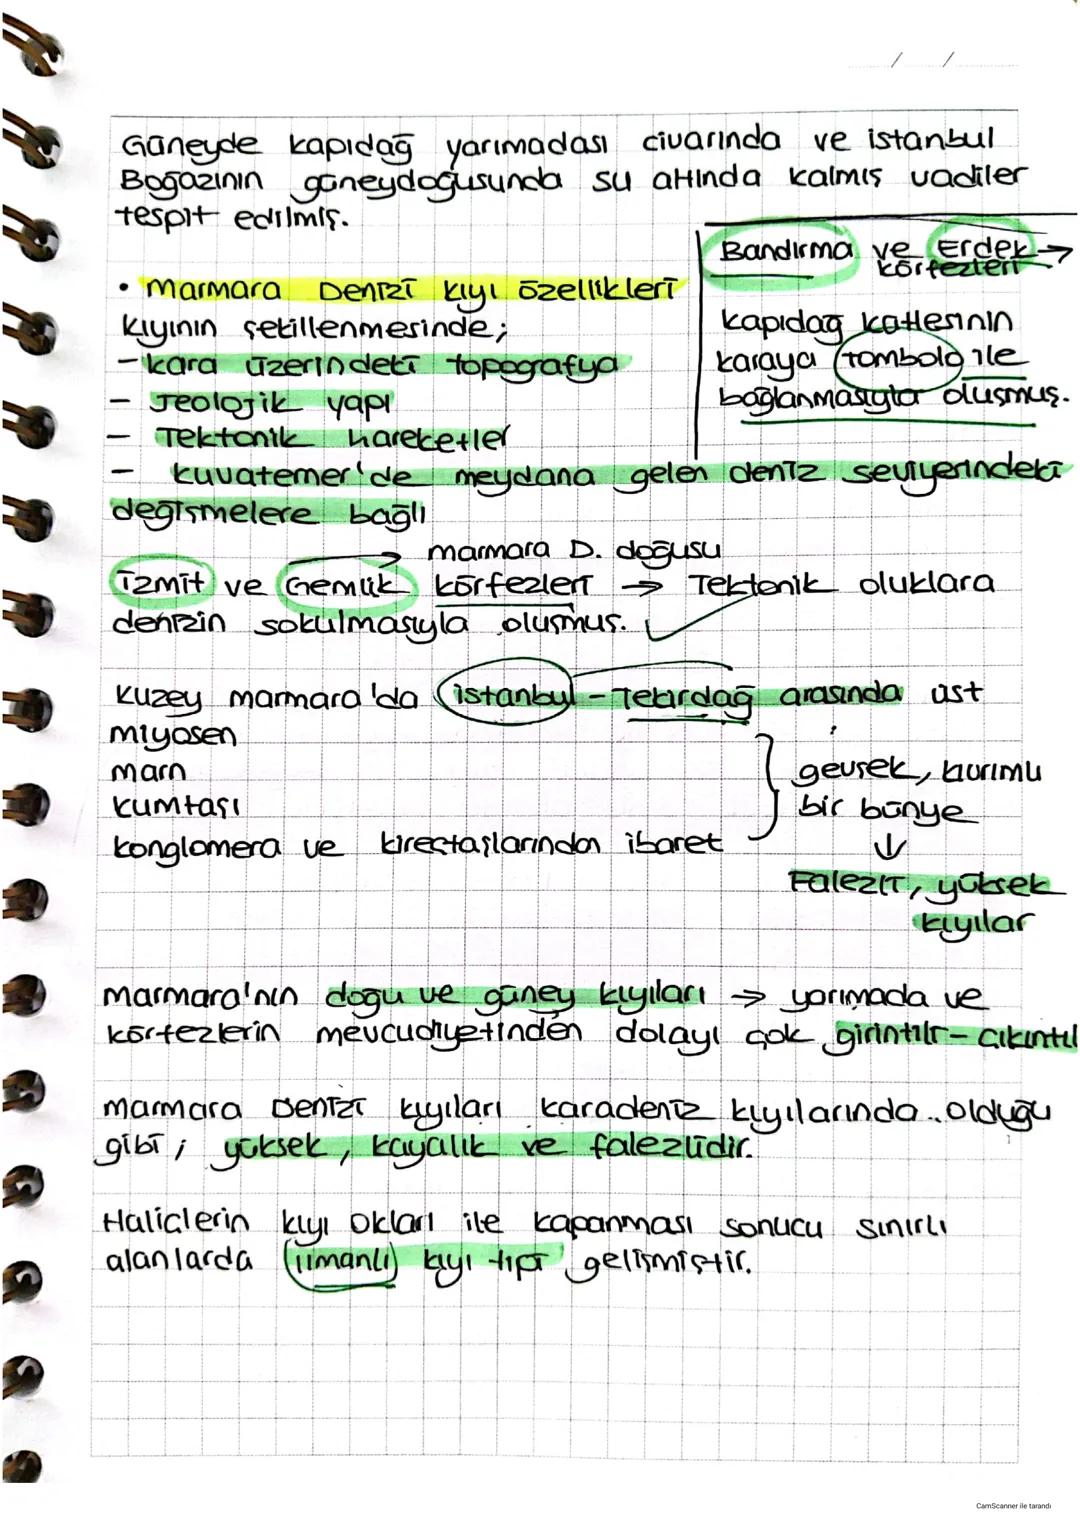 Güneyde kapıdağ yarımadası civarında ve istanbul
Boğazının güneydoğusunda su altında kalmış vadiler
tespit edilmiş.
Bandırma ve Erdek →
körfezleri
kapıdağ kütlesinin
karaya tombolo ile
bağlanmasıyla oluşmuş.
• Marmara Denizi kıyı özellikleri
kıyının şekillenmesinde;
- kara üzerindeki topografya
- Jeolojik yapı
- Tektonik hareketler
- kuvaterner'de meydana gelen deniz seviyerindeki
değişmelere bağlı
→ marmara D. doğusu
İzmit ve Gemlik körfezleri → Tektonik oluklara
denizin sokulmasıyla oluşmuş.
kuzey marmara'da istanbul - Tekirdağ arasında üst
miyosen
marn
kumtaşı
konglomera ve kireçtaşlarından ibaret
gevşek, kırımlı
bir bünye
↓
Falezli, yüksek
kıyılar
marmara'nın doğu ve güney kıyıları → yarımada ve
körfezlerin mevcudiyetinden dolayı çok girintili - çıkıntıl
marmara Denizi kıyıları karadeniz kıyılarında olduğu
gibi; yüksek, kayalık ve falezlidir.
Haliçlerin kıyı okları ile kapanması sonucu sınırlı
alanlarda limanlı kıyı tipi gelişmiştir.
CamScanner ile tarandı